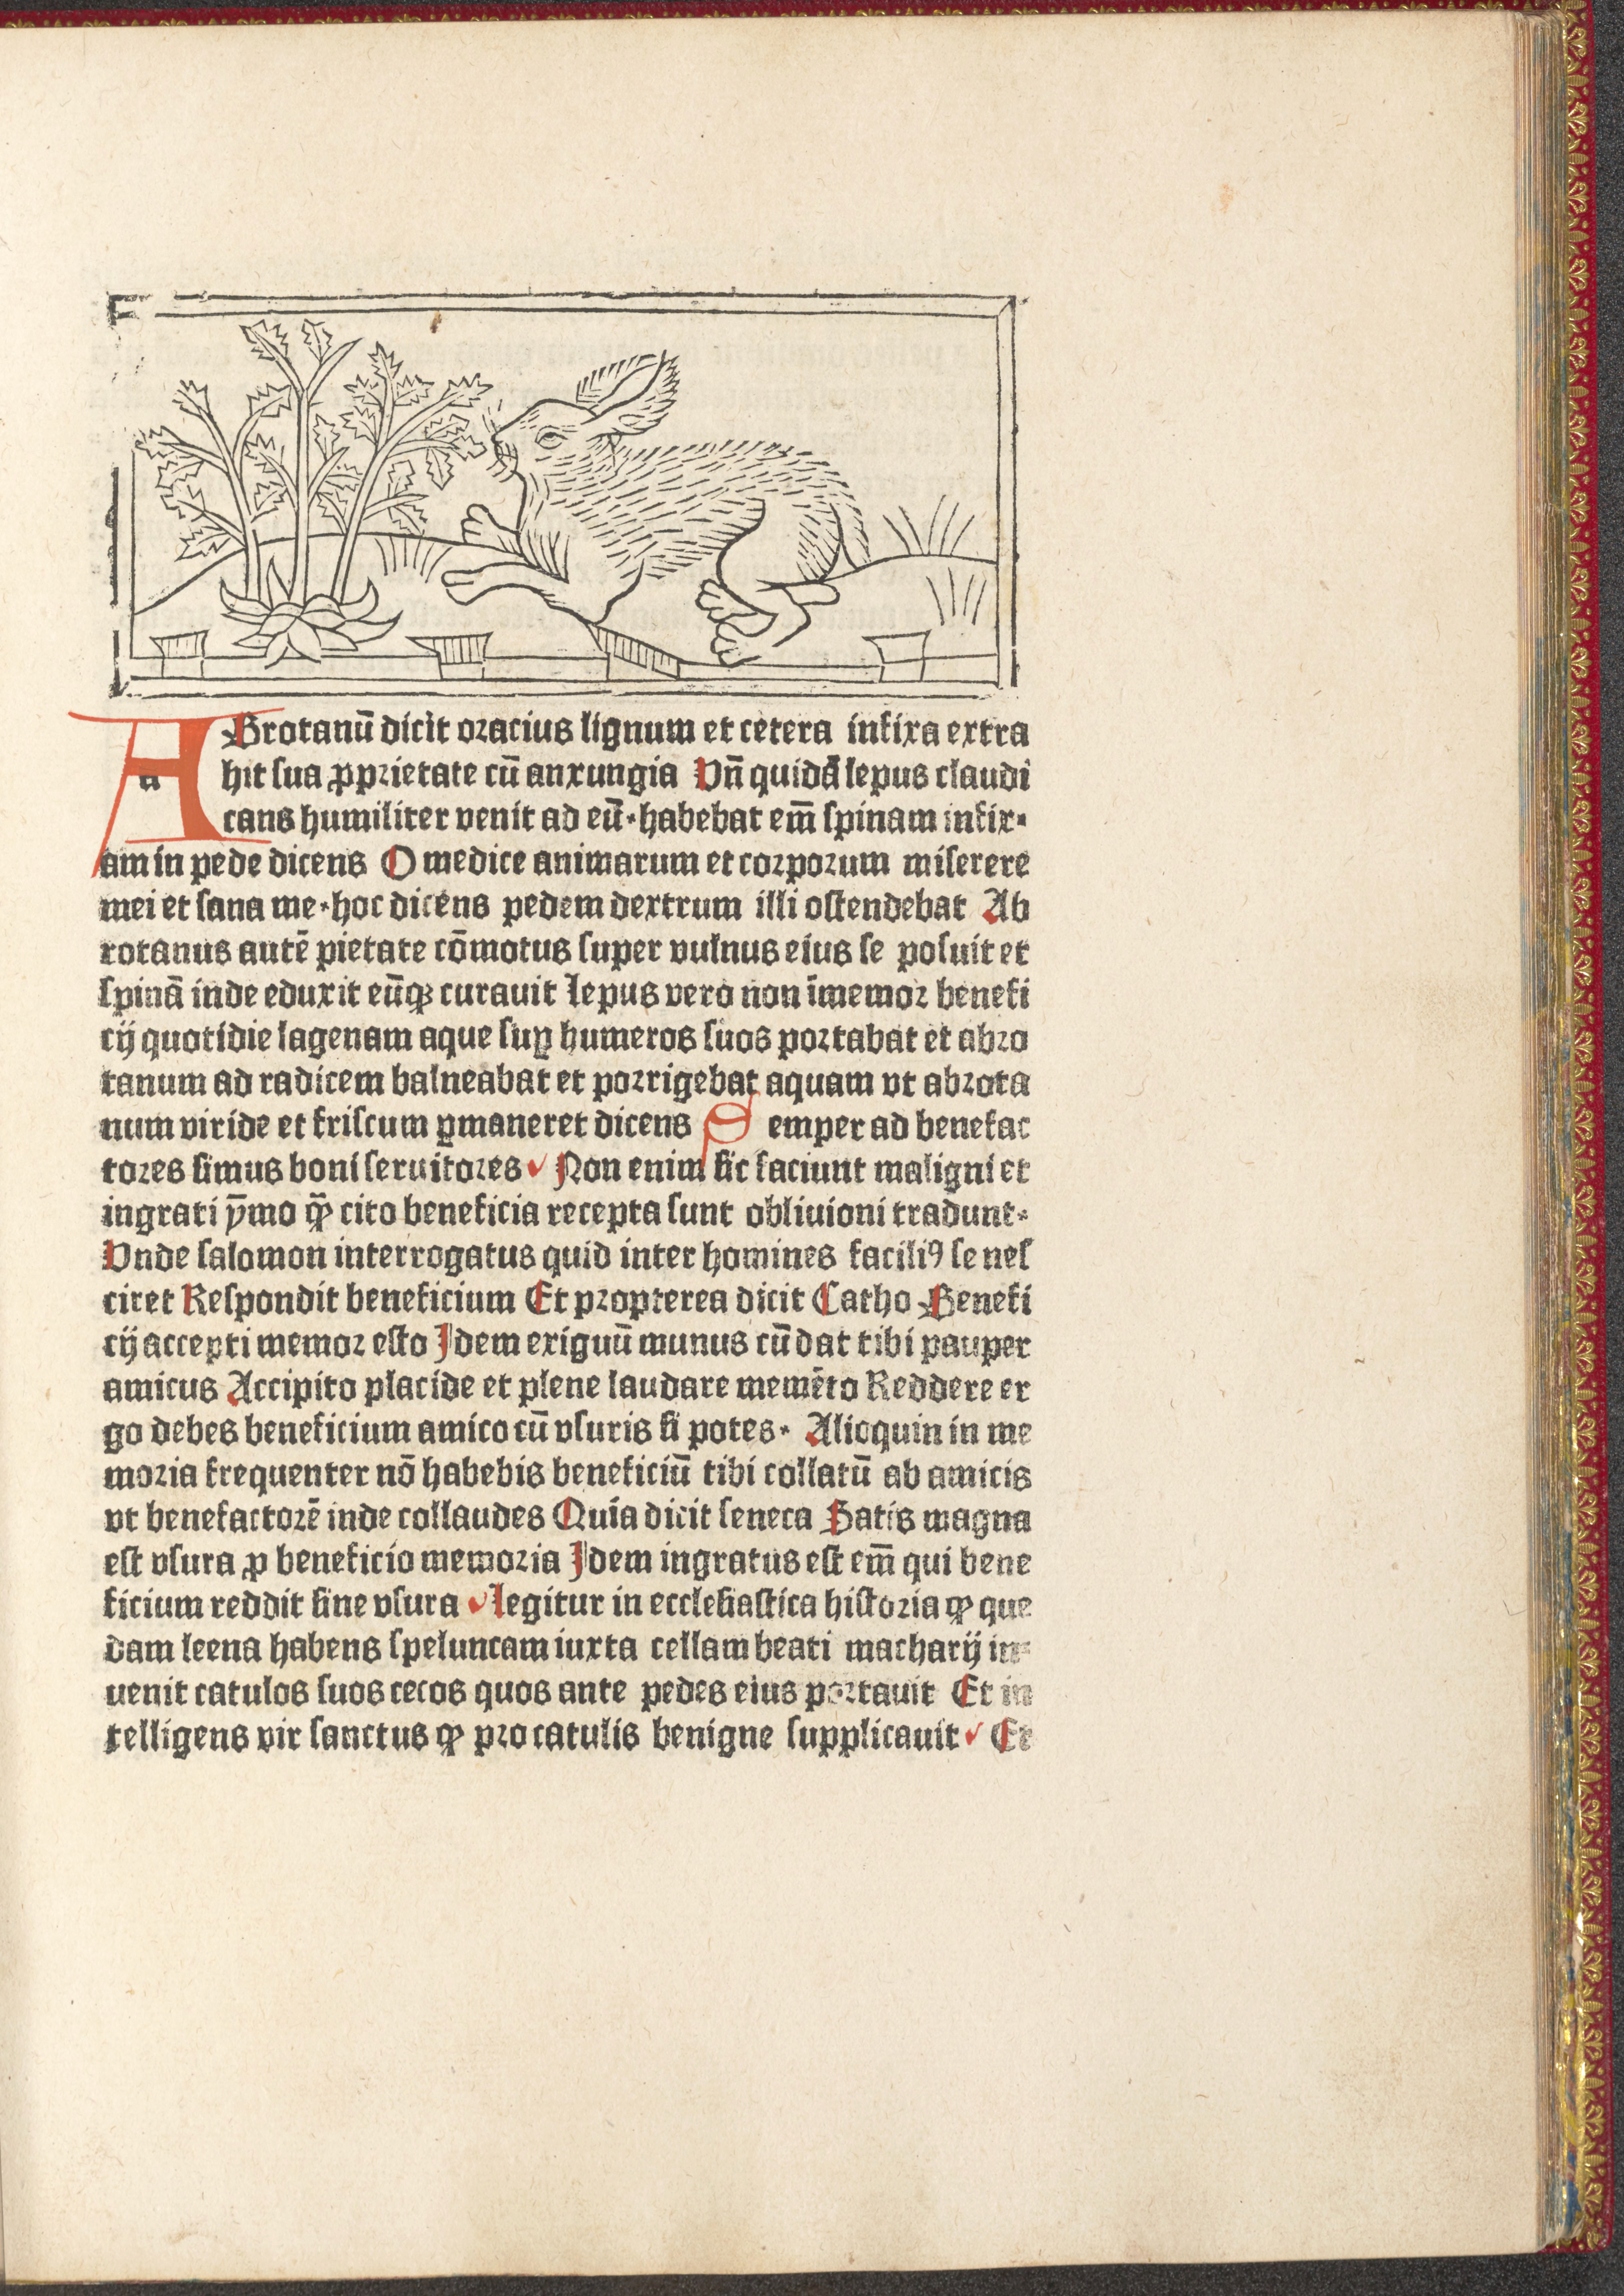 ABrotanū dicit oracius lignum et cetera infixa extra
hit sua ꝓprietate cū anxungia Vn̄ quidā lepus claudi
cans humiliter venit ad eū·habebat em̄ spinam infix⸗
am in pede dicens O medice animarum et corporum miserere
mei et sana me·hoc dicens pedem dextrum illi ostendebat Ab
rotanus autē pietate cōmotus super vulnus eius se posuit et
spinā inde eduxit eūqꝫ curauit lepus vero non īmemor benefi
cij quotidie lagenam aque suꝑ humeros suos portabat et abro
tanum ad radicem balneabat et porrigebat aquam vt abrota
num viride et friscum ꝑmaneret dicens Semper ad benefac
tores simus boni seruitores Non enim sic faciunt maligni et
ingrati ȳmo ꝙ̄ cito beneficia recepta sunt obliuioni tradunt·
Vnde salomon interrogatus quid inter homines faciliꝰ se nes
ciret Respondit beneficium Et propterea dicit Catho Benefi
cij accepti memor esto Idem exiguū munus cū dat tibi pauper
amicus Accipito placide et plene laudare memēto Reddere er
go debes beneficium amico cū vsuris si potes· Alioquin in me
moria frequenter nō habebis beneficiū tibi collatū ab amicis
vt benefactorē inde collaudes Quia dicit seneca Satis magna
est vsura ꝓ beneficio memoria Idem ingratus est em̄ qui bene
ficium reddit sine vsura legitur in ecclesiastica historia ꝙ que
dam leena habens speluncam iuxta cellam beati macharij in⸗
uenit catulos suos cecos quos ante pedes eius portauit Et in
telligens vir sanctus ꝙ pro catulis benigne supplicauit Et